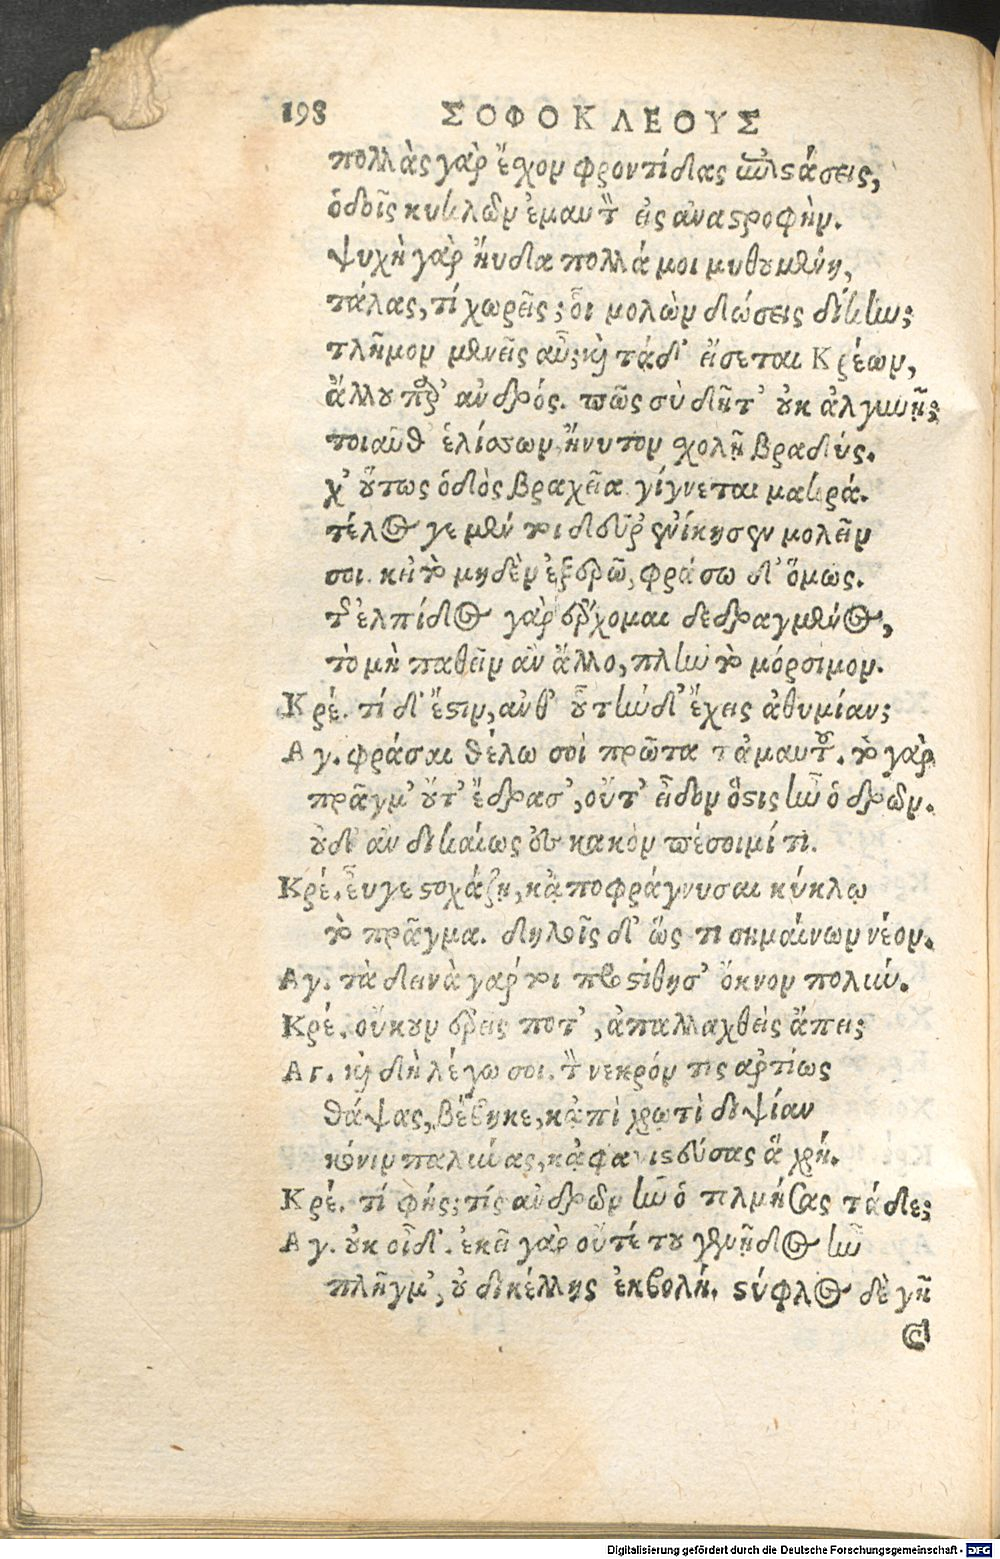 198 ΣΟΦΟΚΛΕΟΥΣ
πολλὰς γὰρ ἔχον φροντίδας ἐπιστάσεις,
ὁδοῖς κυκλῶν ἐμαυτὸν εἰς ἀναστροφήν.
ψυχὴ γὰρ ηὔδα πολλά μοι μυθουμένη,
τάλας, τί χωρεῖς; οἷ μολὼν δώσεις δίκην;
τλῆμον μενεῖς αὖ; καὶ τάδ' εἴσεται Κρέων,
ἄλλου παρ' ἀνδρός. πῶς σὺ δῆτ' οὐκ ἀλγυνῇ;
τοιαῦθ' ἑλίσσων, ἤνυτον χολῇ βραδύς.
χ' οὕτως ὁδὸς βραχεῖα γίγνεται μακρά.
τέλος γε μέν τοι δεῦρ' ἐνίκησεν μολεῖν
σοι. κεἰ τὸ μηδὲν ἐξερῶ, φράσω δ' ὅμως.
τῆς ἐλπίδος γὰρ ἔρχομαι δεδραγμένος,
τὸ μὴ παθεῖν ἂν ἄλλο, πλὴν τὸ μόρσιμον.
Κρέ. τί δ' ἔστιν, ἀνθ' οὗ τήνδ' ἔχεις ἀθυμίαν;
Αγ. φράσαι θέλω σοὶ πρῶτα τἀμαυτοῦ. τὸ γὰρ
πρᾶγμ' οὔτ' ἔδρασ', οὔτ' εἶδον ὅστις ἦν ὁ δρῶν.
οὐδ' ἂν δικαίως ἐς κακὸν πέσοιμί τι.
Κρέ. εὖγε στοχάζῃ, κᾀποφράγνυσαι κύκλῳ
τὸ πρᾶγμα. δηλοῖς δ' ὥς τι σημαίνων νέον.
Αγ. τὰ δεινὰ γάρ τοι προστίθησ' ὄκνον πολύν.
Κρέ. οὔκουν ἐρεῖς ποτ', ἀπαλλαχθεὶς ἄπει;
Αγ. καὶ δὴ λέγω σοι. τὸν νεκρόν τις ἀρτίως
θάψας, βέβηκε, κᾀπὶ χρωτὶ διψίαν
κόνιν παλύνας, κᾀφαγιστεύσας ἃ χρή.
Κρέ. τί φής; τίς ἀνδρῶν ἦν ὁ τολμήσας τάδε;
Αγ. οὐκ οἶδ'. ἐκεῖ γὰρ οὔτέ του γενῇδος ἦν
πλῆγμ', οὐ δικέλλης ἐκβολή. στύφλος δὲ γῆ
Digitalisierung gefördert durch die Deutsche Forschungsgemeinschaft - DFG